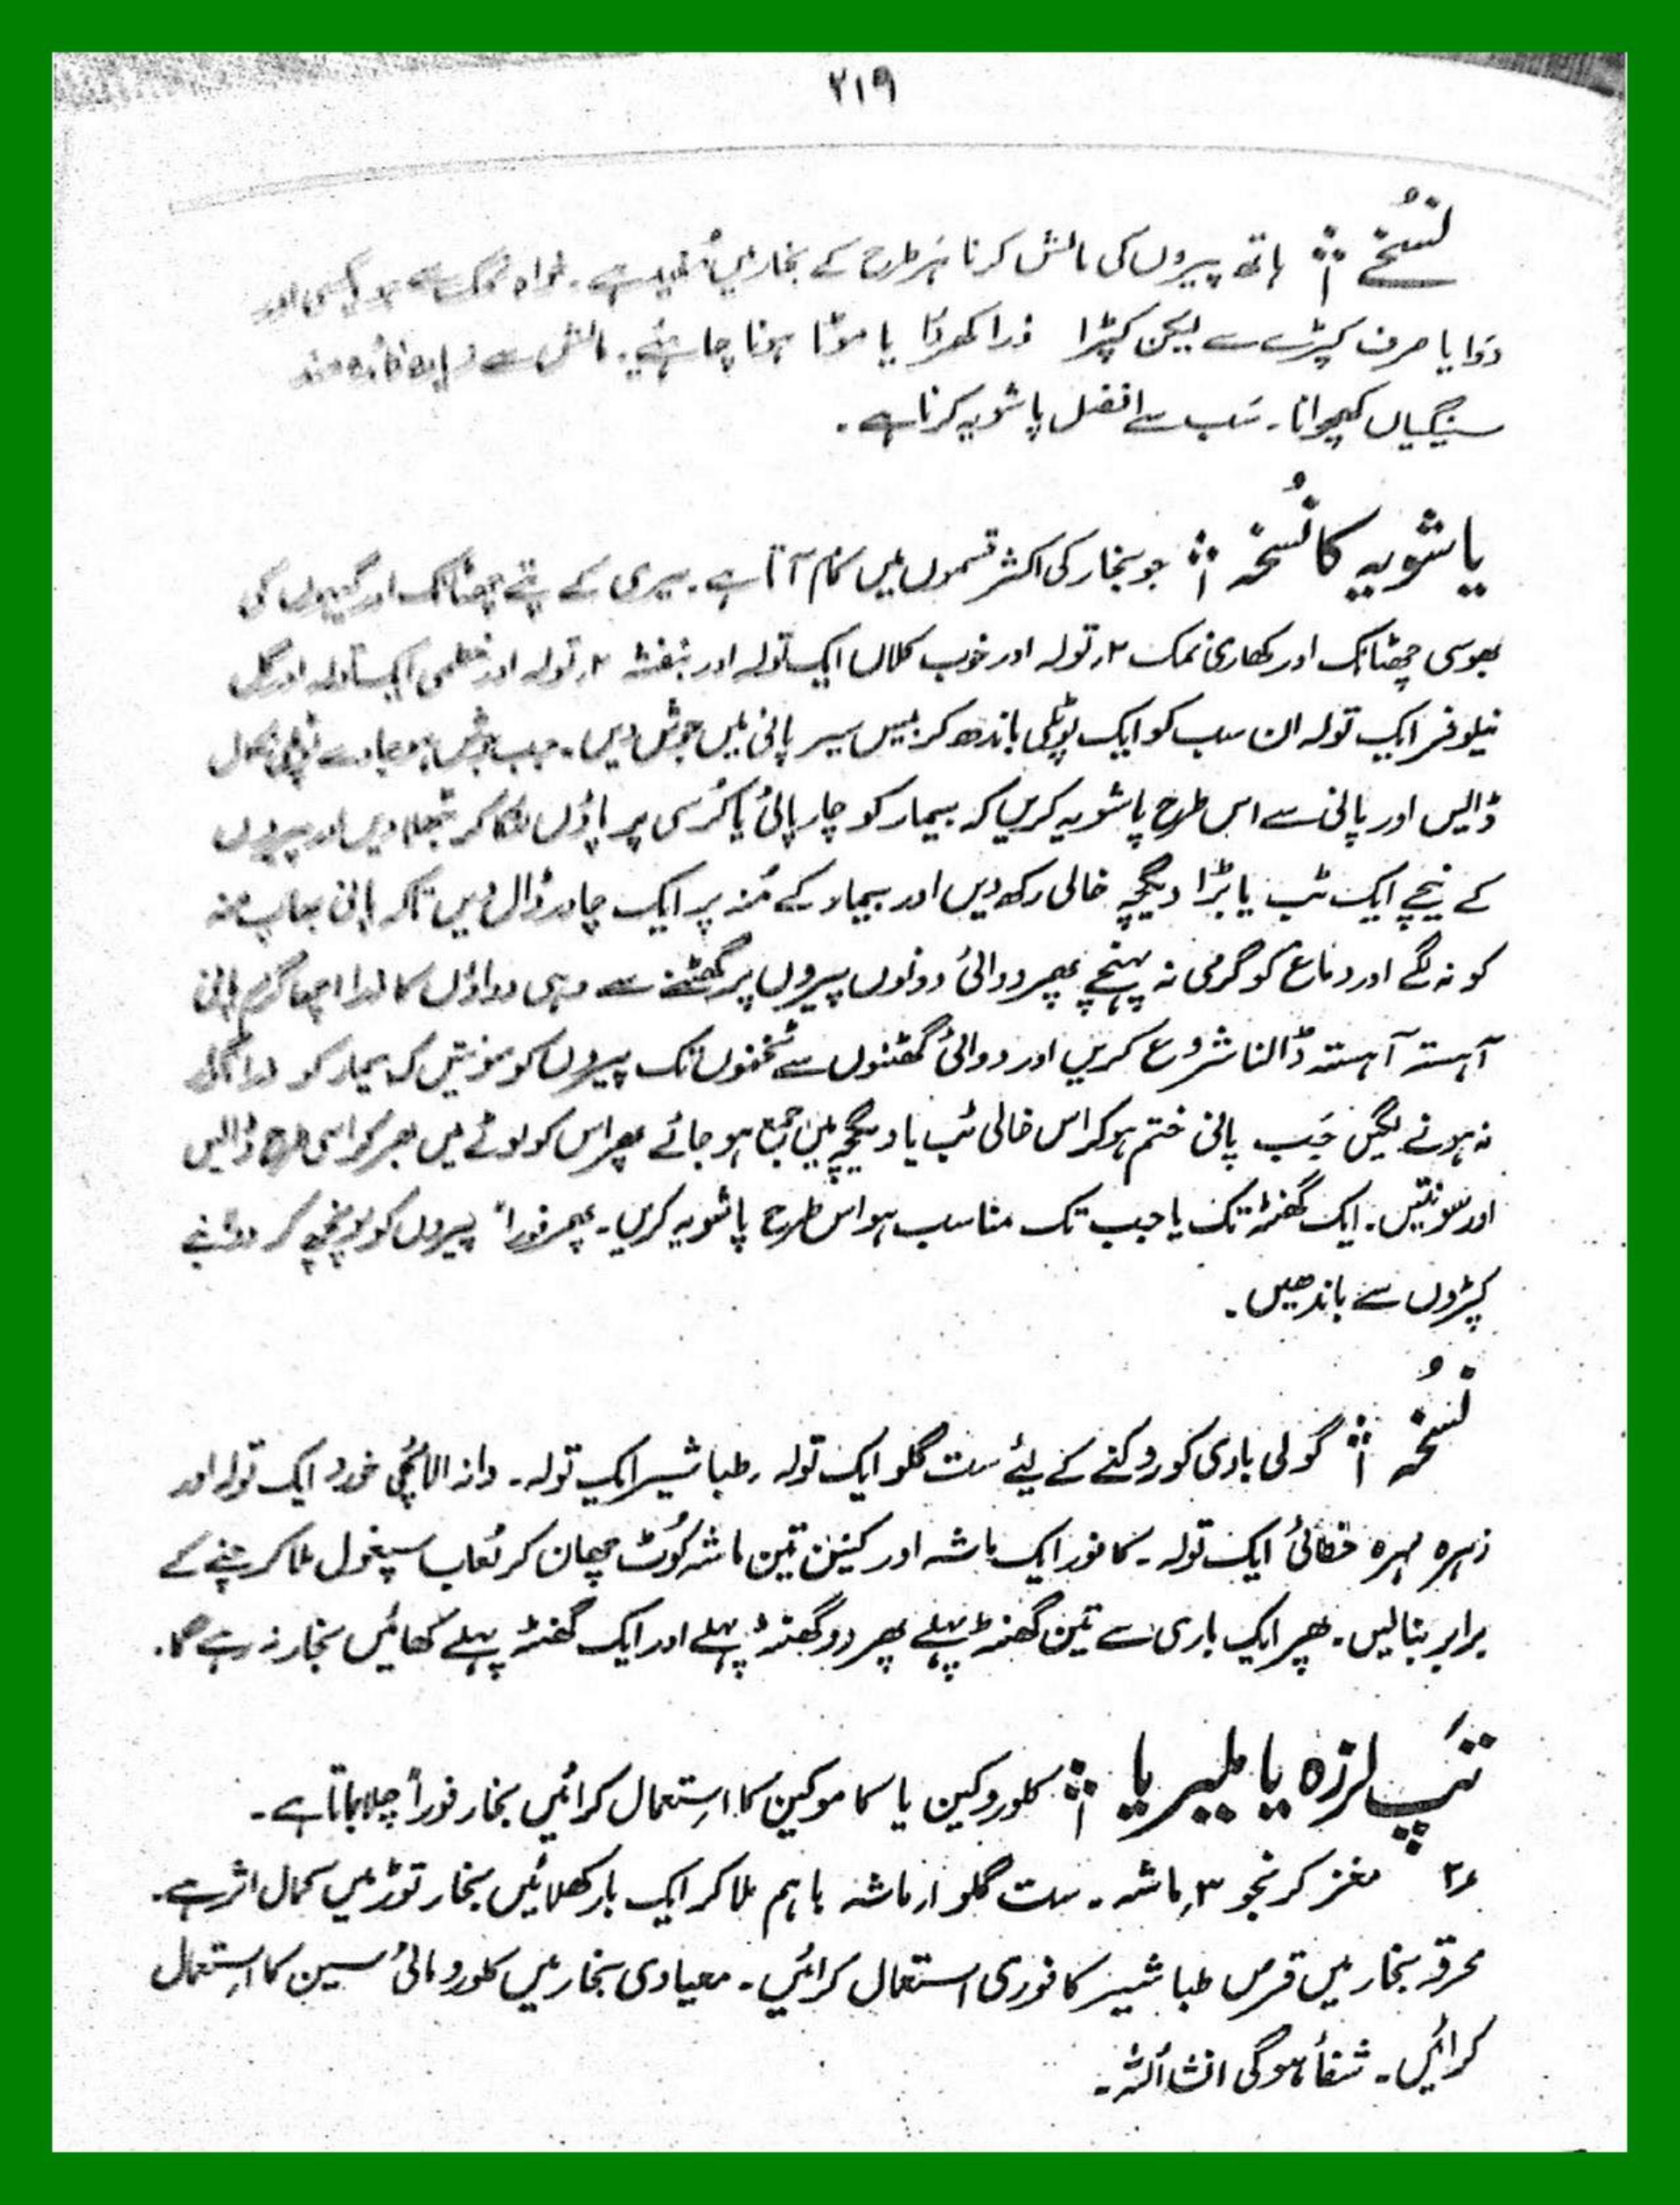 ۲۱۹
نُسخے : ہاتھ پیروں کی مالش کرنا ہر طرح کے بخار میں مُفید ہے۔ خواہ نمک سے ہو یا کسی اور
دَوا یا صرف کپڑے سے لیکن کپڑا ذرا کھردُا یا موٹا ہونا چاہئیے۔ مالش سے زیادہ فائدہ مند
سینگیاں کھچوانا۔ سَب سے افضل پاشویہ کرنا ہے۔
پاشویہ کا نُسخہ : جو بخار کی اکثر قسموں میں کام آتا ہے۔ بیری کے پتے چھٹانک اور گیہوں کی
بھوسی چھٹانک اور کھاری نمک ۲؍تولہ اور خوب کلاں ایک تولہ اور بنفشہ ۲؍تولہ اور خطمی ایک تولہ اور گل
نیلوفر ایک تولہ ان سب کو ایک پوٹلی باندھ کر بیس سیر پانی میں جوش دیں۔ جب جوش ہو جاوے پوٹلی نکال
ڈالیں اور پانی سے اس طرح پاشویہ کریں کہ بیمار کو چارپائی یا کُرسی پر پاؤں لٹکا کر بٹھلا دیں اور پیروں
کے نیچے ایک ٹب یا بڑا دیگچہ خالی رکھ دیں اور بیمار کے مُنہ پر ایک چادر ڈال دیں تاکہ پانی بھاپ منہ
کو نہ لگے اور دماغ کو گرمی نہ پہنچے پھر دوائی دونوں پیروں پر گھٹنے سے وہی دواؤں کا اچھا گرم پانی
آہستہ آہستہ ڈالنا شروع کریں اور دوائی گھٹنوں سے ٹخنوں تک پیروں کو سونتیں کہ بیمار کو
نہ ہونے لگیں جَب پانی ختم ہوکر اس خالی ٹب یا دیگچہ میں جمع ہو جائے پھر اس کو لوٹے میں بھر کر اسی طرح ڈالیں
اور سونتیں۔ ایک گھنٹہ تک یا جب تک مناسب ہو اس طرح پاشویہ کریں۔ پھر فوراً پیروں کو پونچھ کر
کپڑوں سے باندھیں۔
نُسخہ : گولی باری کو روکنے کے لئے ست گلو ایک تولہ ۔ طباشیر ایک تولہ۔ دانہ الائچی خورد ایک تولہ اور
زہرہ مہرہ خطائی ایک تولہ۔ کافور ایک ماشہ اور کنین تین ماشہ کُوٹ چھان کر لُعاب سپغول ملا کر چنے کے
برابر بنالیں۔ پھر ایک باری سے تین گھنٹہ پہلے پھر دو گھنٹہ پہلے اور ایک گھنٹہ پہلے کھائیں بخار نہ رہے گا۔
تپ لرزہ یا ملیریا : کلوروکین یا کاموکین کا استعمال کرائیں بخار فوراً چلا جاتا ہے۔
۲؍ مغز کرنجو ۳؍ماشہ۔ ست گلو ۱؍ماشہ باہم ملا کر ایک بار کھلائیں بخار توڑ میں کمال اثر ہے۔
محرقہ بخار میں قرص طباشیر کافوری استعمال کرائیں۔ معیادی بخار میں کلورومائی سین کا استعمال
کرائیں۔ شفأ ہوگی انشأاللہ۔